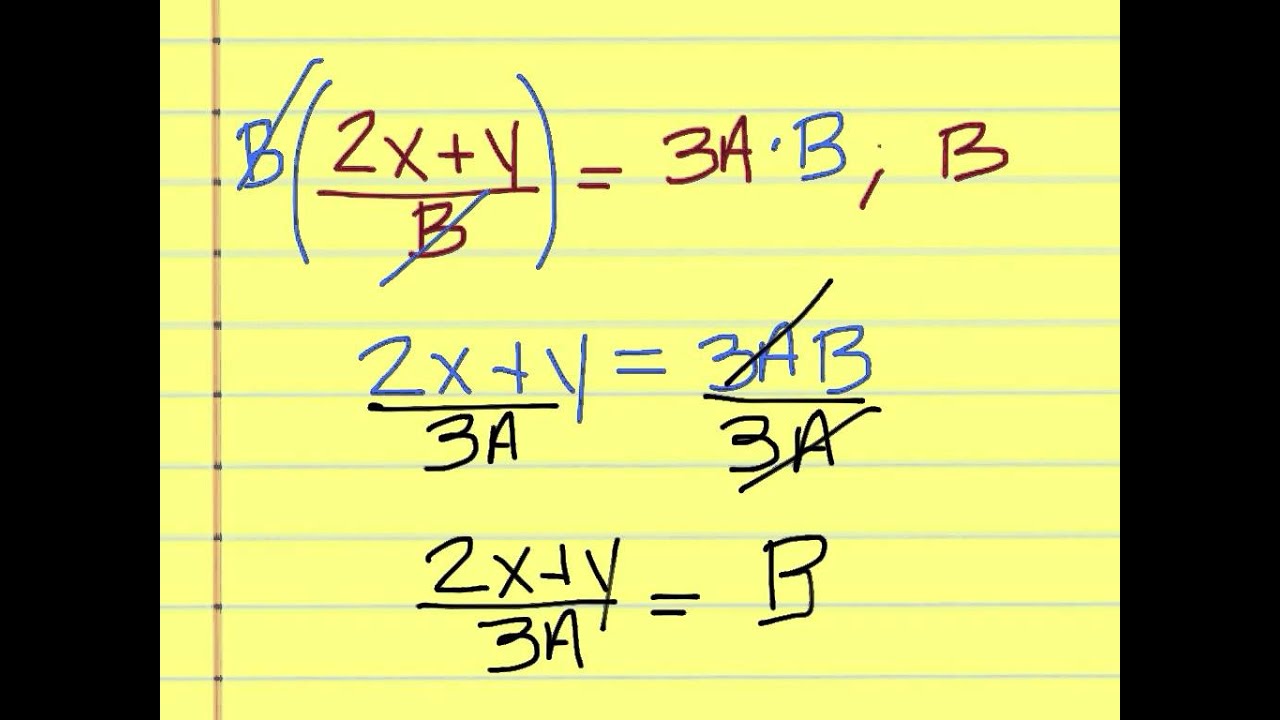 B(2x+y/B) = 3A·B; B
2x+y/3A = 3AB/3A
2x+y/3A = B